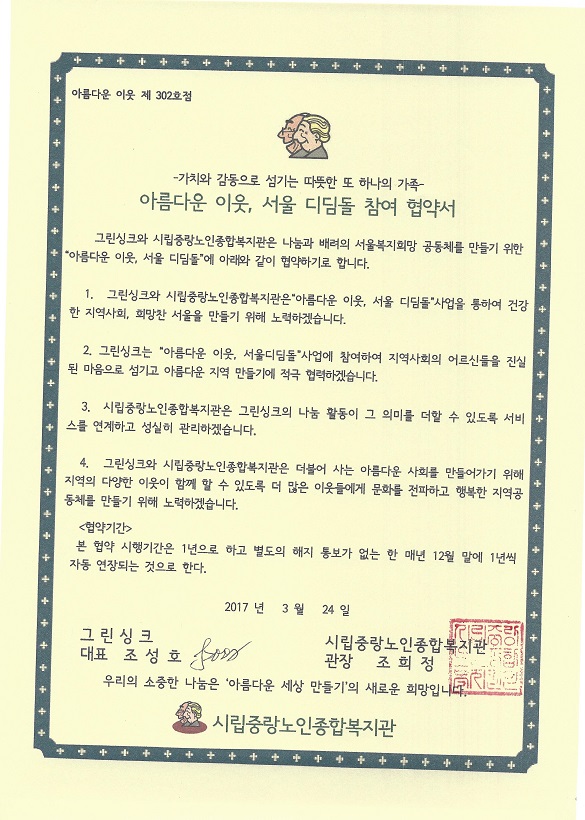 아름다운 이웃 제 302호점
-가치와 감동으로 섬기는 따뜻한 또 하나의 가족-
아름다운 이웃, 서울 디딤돌 참여 협약서
그린싱크와 시립중랑노인종합복지관은 나눔과 배려의 서울복지희망 공동체를 만들기 위한
"아름다운 이웃, 서울 디딤돌"에 아래와 같이 협약하기로 합니다.
1. 그린싱크와 시립중랑노인종합복지관은"아름다운 이웃, 서울 디딤돌"사업을 통하여 건강
한 지역사회, 희망찬 서울을 만들기 위해 노력하겠습니다.
2. 그린싱크는 "아름다운 이웃, 서울디딤돌"사업에 참여하여 지역사회의 어르신들을 진실
된 마음으로 섬기고 아름다운 지역 만들기에 적극 협력하겠습니다.
3. 시립중랑노인종합복지관은 그린싱크의 나눔 활동이 그 의미를 더할 수 있도록 서비
스를 연계하고 성실히 관리하겠습니다.
4. 그린싱크와 시립중랑노인종합복지관은 더불어 사는 아름다운 사회를 만들어가기 위해
지역의 다양한 이웃이 함께 할 수 있도록 더 많은 이웃들에게 문화를 전파하고 행복한 지역공
동체를 만들기 위해 노력하겠습니다.
<협약기간>
본 협약 시행기간은 1년으로 하고 별도의 해지 통보가 없는 한 매년 12월 말에 1년씩
자동 연장되는 것으로 한다.
2017 년 3 월 24 일
그린싱크
대표 조성호
시립중랑노인종합복지관
관장 조희정
우리의 소중한 나눔은 '아름다운 세상 만들기'의 새로운 희망입니다.
시립중랑노인종합복지관